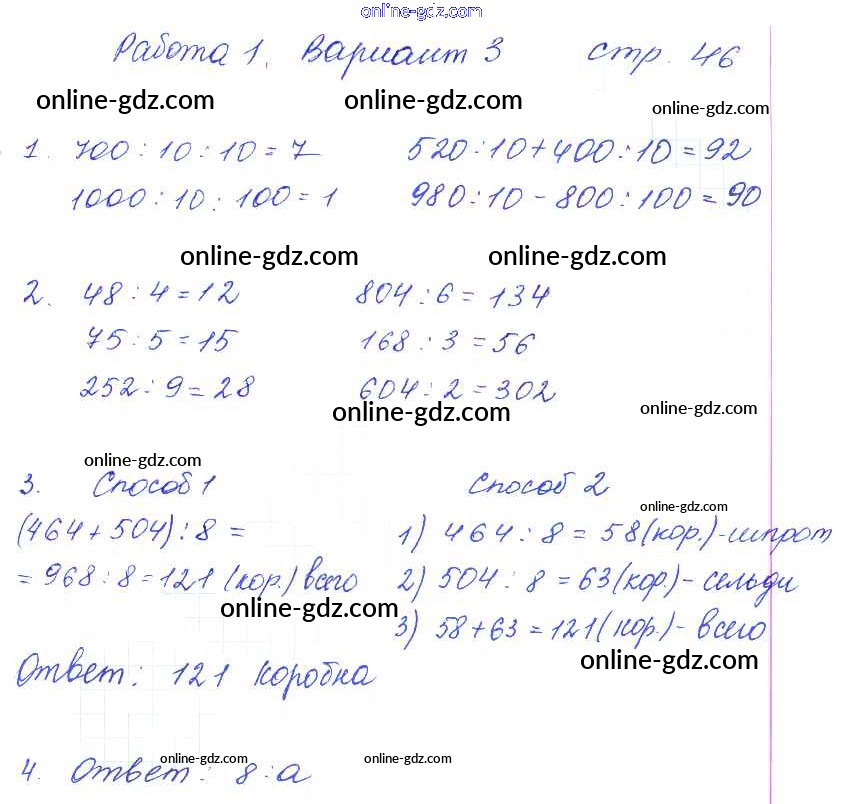 online-gdz.com
Работа 1. Вариант 3 стр. 46
online-gdz.com online-gdz.com online-gdz.com
1. 700 : 10 : 10 = 7 520 : 10 + 400 : 10 = 92
1000 : 10 : 100 = 1 980 : 10 - 800 : 100 = 90
online-gdz.com online-gdz.com
2. 48 : 4 = 12 804 : 6 = 134
75 : 5 = 15 168 : 3 = 56
252 : 9 = 28 604 : 2 = 302
online-gdz.com online-gdz.com
online-gdz.com
3. Способ 1 Способ 2
online-gdz.com
(464 + 504) : 8 = 1) 464 : 8 = 58 (кор.) - шпрот
= 968 : 8 = 121 (кор.) всего 2) 504 : 8 = 63 (кор.) - сельди
online-gdz.com
3) 58 + 63 = 121 (кор.) - всего
online-gdz.com
Ответ: 121 коробка
online-gdz.com online-gdz.com
4. Ответ: 8 : а